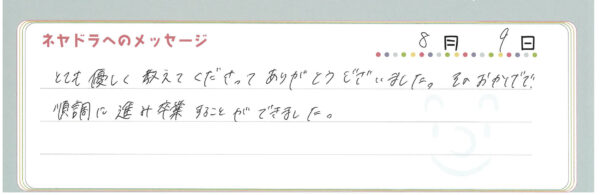 ネヤドラへのメッセージ 8月9日
とても優しく教えてくださってありがとうございました。そのおかげで、
順調に進み卒業することができました。